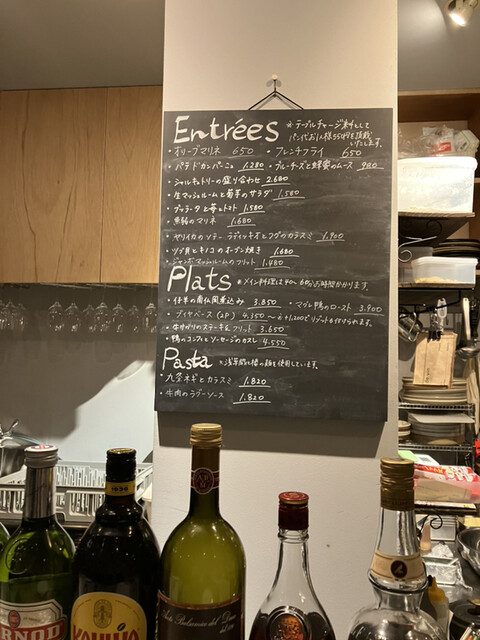 Entrées ※テーブルチャージ料として
パン代お1人様550円を頂戴
いたします。
・オリーブマリネ 650 ・フレンチフライ 650
・パテドカンパーニュ 1.280 ・ブルーチーズと蜂蜜のムース 980
・シャルキュトリーの盛り合わせ 2.680
・生マッシュルームと菊芋のサラダ 1.580
・ブッラータと苺とトマト 1.580
のマリネ 1.680
・ヤリイカのソテー ラディッキオとフグのカラスミ 1.900
・ツブ貝とキノコのオーブン焼き 1.680
・ジャンボマッシュルームのフリット 1.480
Plats ※メイン料理は40〜60分お時間かかります。
・仔羊の南仏風煮込み 3.850 ・マグレ鴨のロースト 3.900
・ブイヤベース (2P) 4.150〜 +1,200でリゾットが作れます。
・牛ハラミのステーキ&フリット 3.650
・鴨のコンフィとソーセージのカスレ 4.550
Pasta ※浅草開化楼の麺を使用しています。
・九条ネギとカラスミ 1.820
・牛肉のラグーソース 1.820
PERNOD
KAHLÚA